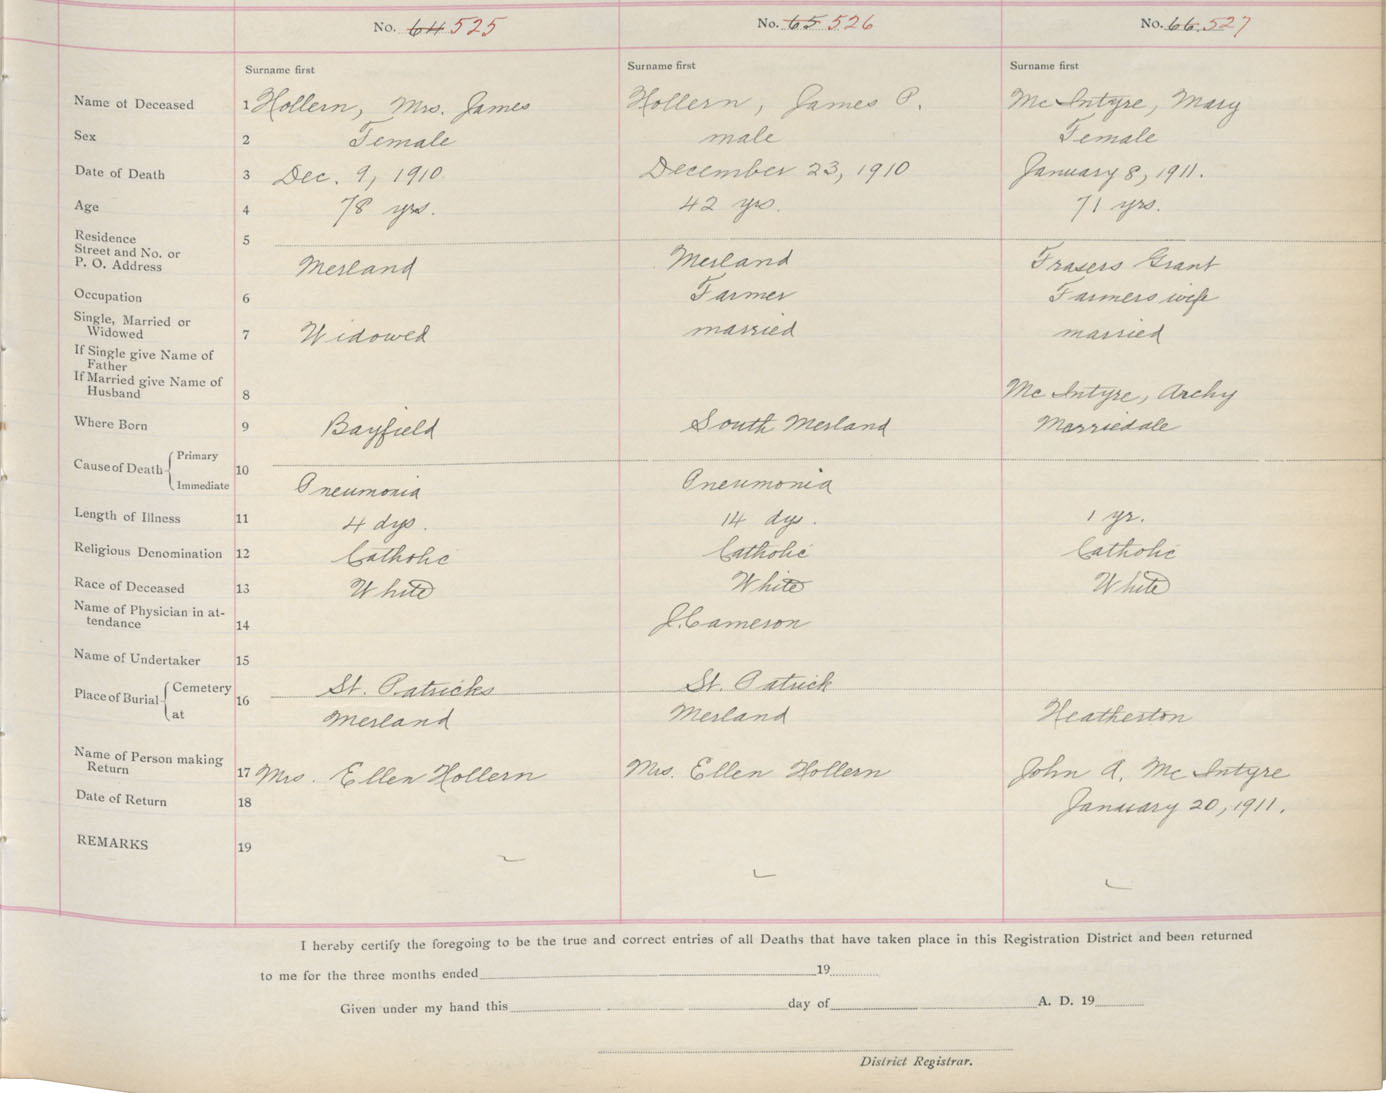 No. 64 525 No. 65 526 No. 66. 527
Surname first Surname first Surname first
Name of Deceased 1 Hollern, Mrs. James Hollern, James P. McIntyre, Mary
Sex 2 Female male Female
Date of Death 3 Dec. 9, 1910 December 23, 1910 January 8, 1911.
Age 4 78 yrs. 42 yrs. 71 yrs.
Residence 5
Street and No. or
P. O. Address Merland Merland Frasers Grant
Occupation 6 Farmer Farmers wife
Single, Married or
Widowed 7 Widowed married married
If Single give Name of
Father
If Married give Name of
Husband 8 McIntyre, Archy
Where Born 9 Bayfield South Merland Marriedale
Cause of Death Primary 10
Immediate Pneumonia Pneumonia
Length of Illness 11 4 dys. 14 dys. 1 yr.
Religious Denomination 12 Catholic Catholic Catholic
Race of Deceased 13 White White White
Name of Physician in at-
tendance 14 J. Cameron
Name of Undertaker 15
Place of Burial Cemetery 16 St. Patricks St. Patrick
at Merland Merland Heatherton
Name of Person making
Return 17 Mrs. Ellen Hollern Mrs. Ellen Hollern John A. McIntyre
Date of Return 18 January 20, 1911.
REMARKS 19
I hereby certify the foregoing to be the true and correct entries of all Deaths that have taken place in this Registration District and been returned
to me for the three months ended 19
Given under my hand this day of A. D. 19
District Registrar.